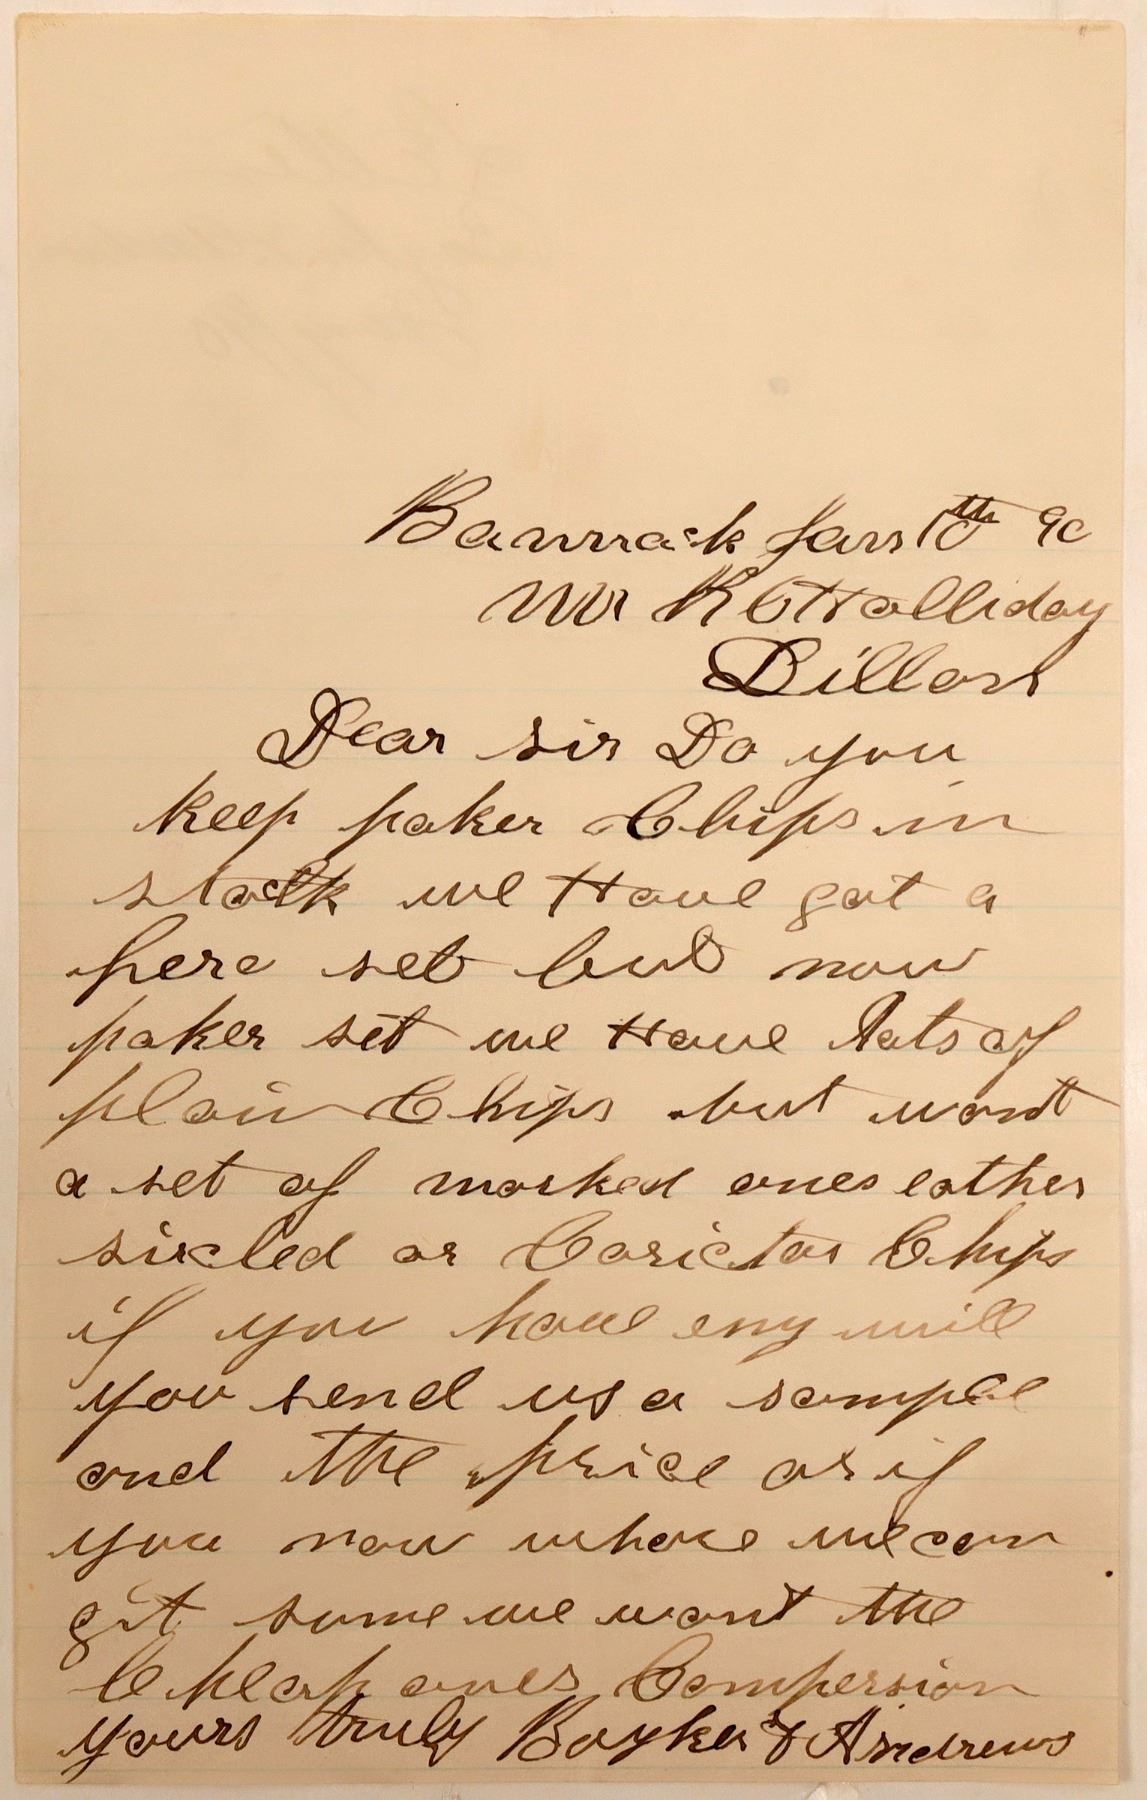 Bannack Jan 10th 90
Mr R C Halliday
Dillon
Dear sir Do you
keep poker Chips in
stock we Have got a
fere set but now
poker set we Have lots of
plain Chips but want
a set of marked ones eather
sircled or Carictor Chips
if you have eny will
you send us a sample
and the price or if
you now whare we can
git some we want the
Cheap ones Compersion
yours truly Boyker & Andrews